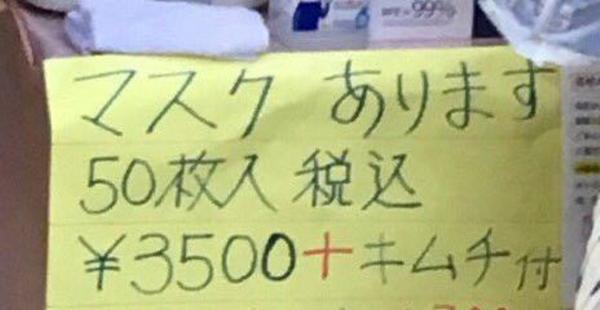 99%
マスク あります
50枚入 税込
¥3500+キムチ付